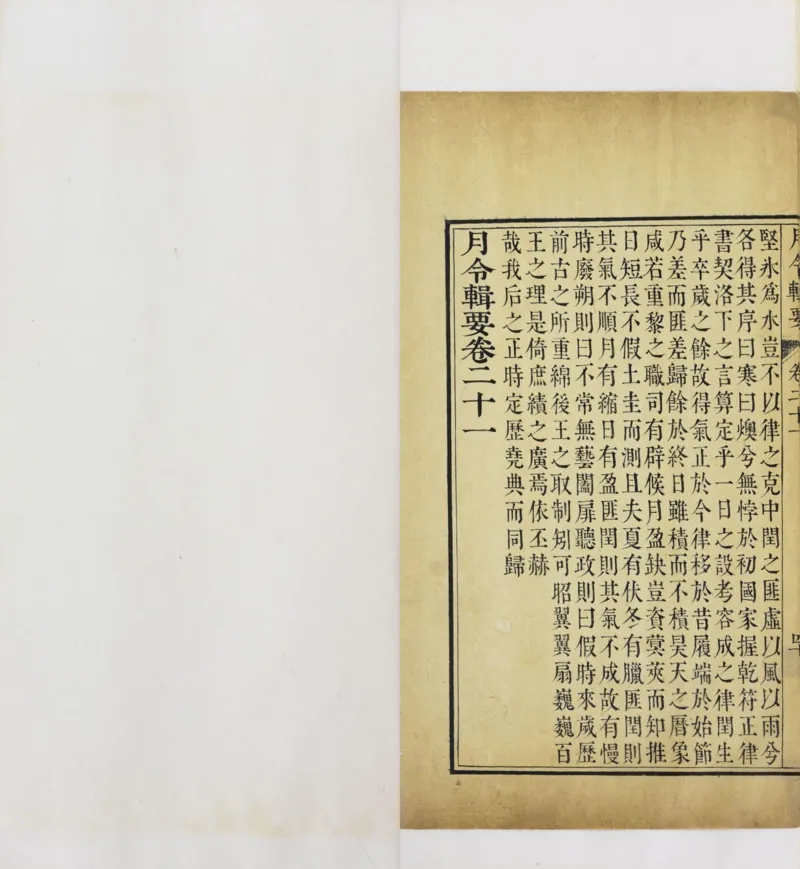 月令輯要 卷二十一
堅氷爲水豈不以律之克中閏之匪虛以風以雨兮
各得其序曰寒曰燠兮無悖於初國家握乾符正律
書契洛下之言算定乎一日之設考容成之律閏生
乎卒歲之餘故得氣正於今律移於昔履端於始節
乃差而匪差歸餘於終日雖積而不積昊天之曆象
咸若重黎之職司有辟候月盈缺豈資蓂莢而知推
日短長不假土圭而測且夫夏有伏冬有臘匪閏則
其氣不順月有縮日有盈匪閏則其氣不成故有慢
時廢朔則曰不常無藝闔扉聽政則曰假時來歲歷
前古之所重綿後王之取制矧可昭翼翼扇巍巍百
王之理是倚庶績之廣焉依丕赫
哉我后之正時定歷堯典而同歸
月令輯要卷二十一